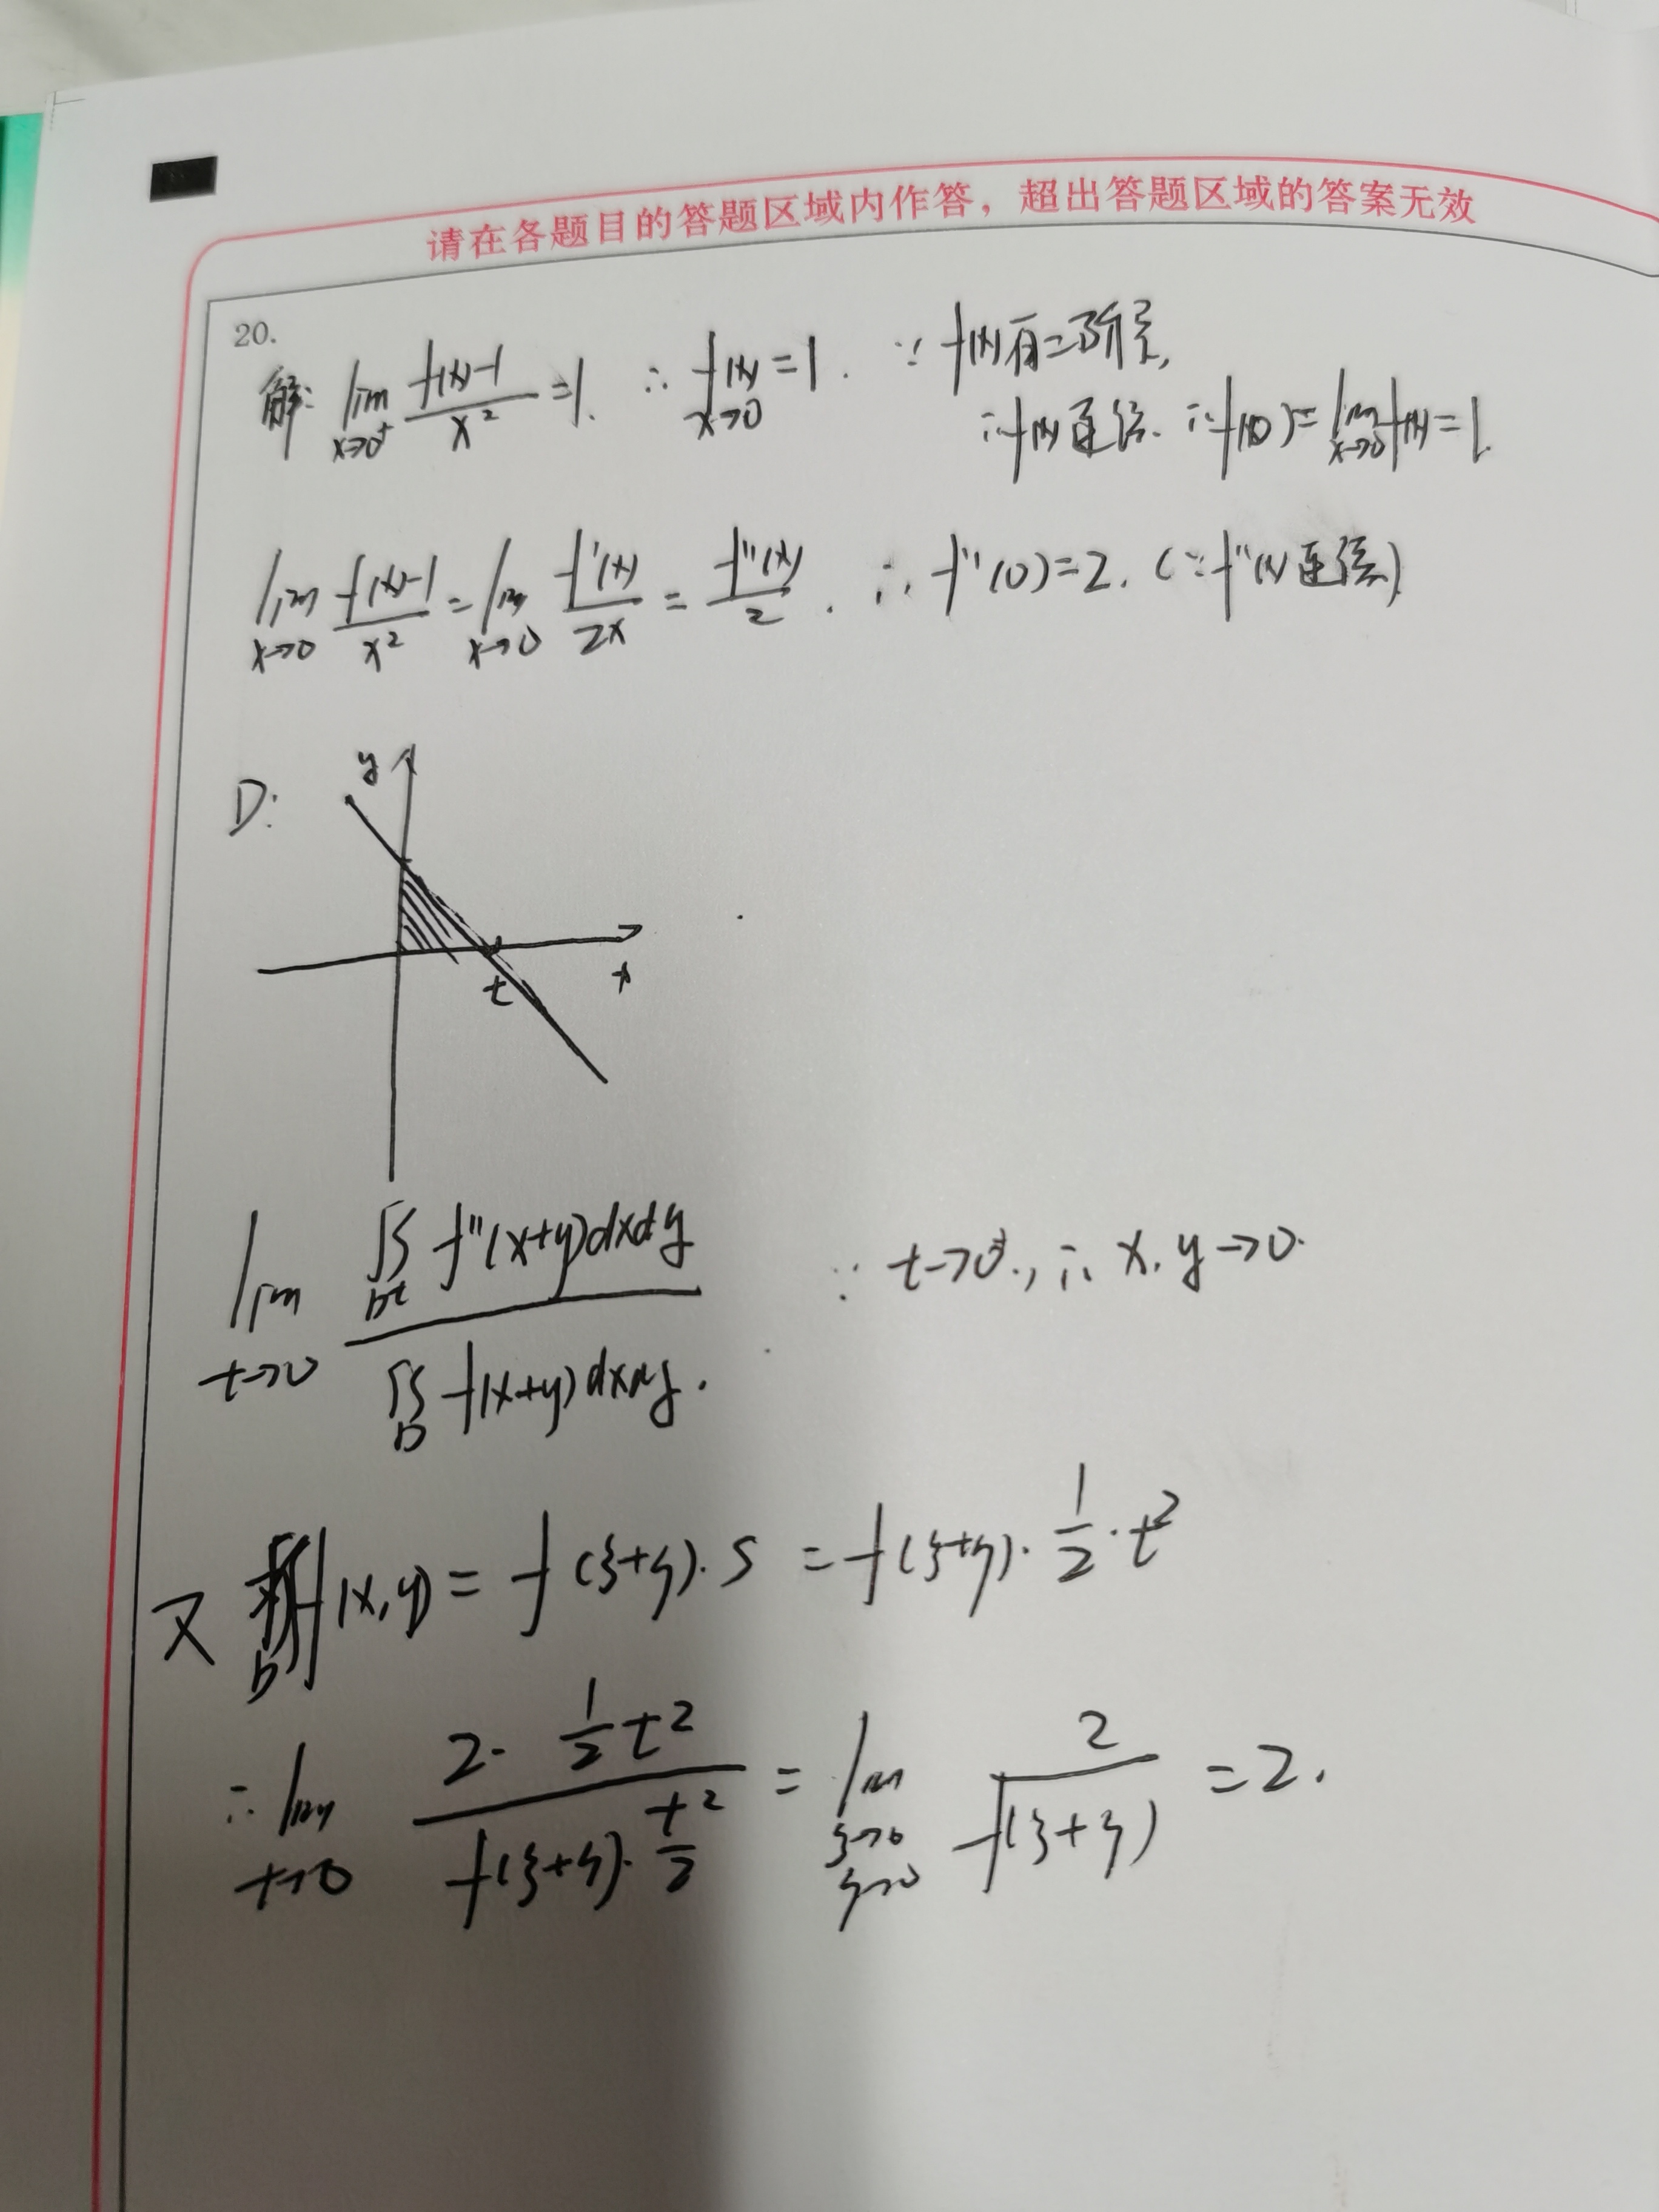 请在各题目的答题区域内作答，超出答题区域的答案无效
20.
解: lim x→0⁺ (f(x)-1)/x² =1. ∴ f(x) x→0 =1. ∵ f(x)有二阶导,
∴f(x)连续. ∴f(0)=lim x→0 f(x)=1.
lim x→0 (f(x)-1)/x² = lim x→0 f'(x)/2x = f''(x)/2. ∴ f''(0)=2. (∵f''(x)连续)
D:
y
t
x
lim t→0 ∬Dt f''(x+y)dxdy / ∬D f(x+y)dxdy. ∵ t→0⁺, ∴ x, y→0.
又 ∬D f(x,y) = f(ξ+η)·S = f(ξ+η)·1/2·t²
∴ lim t→0 (2·1/2 t²)/(f(ξ+η)·t²/2) = lim ξ→0 η→0 2/f(ξ+η) =2.